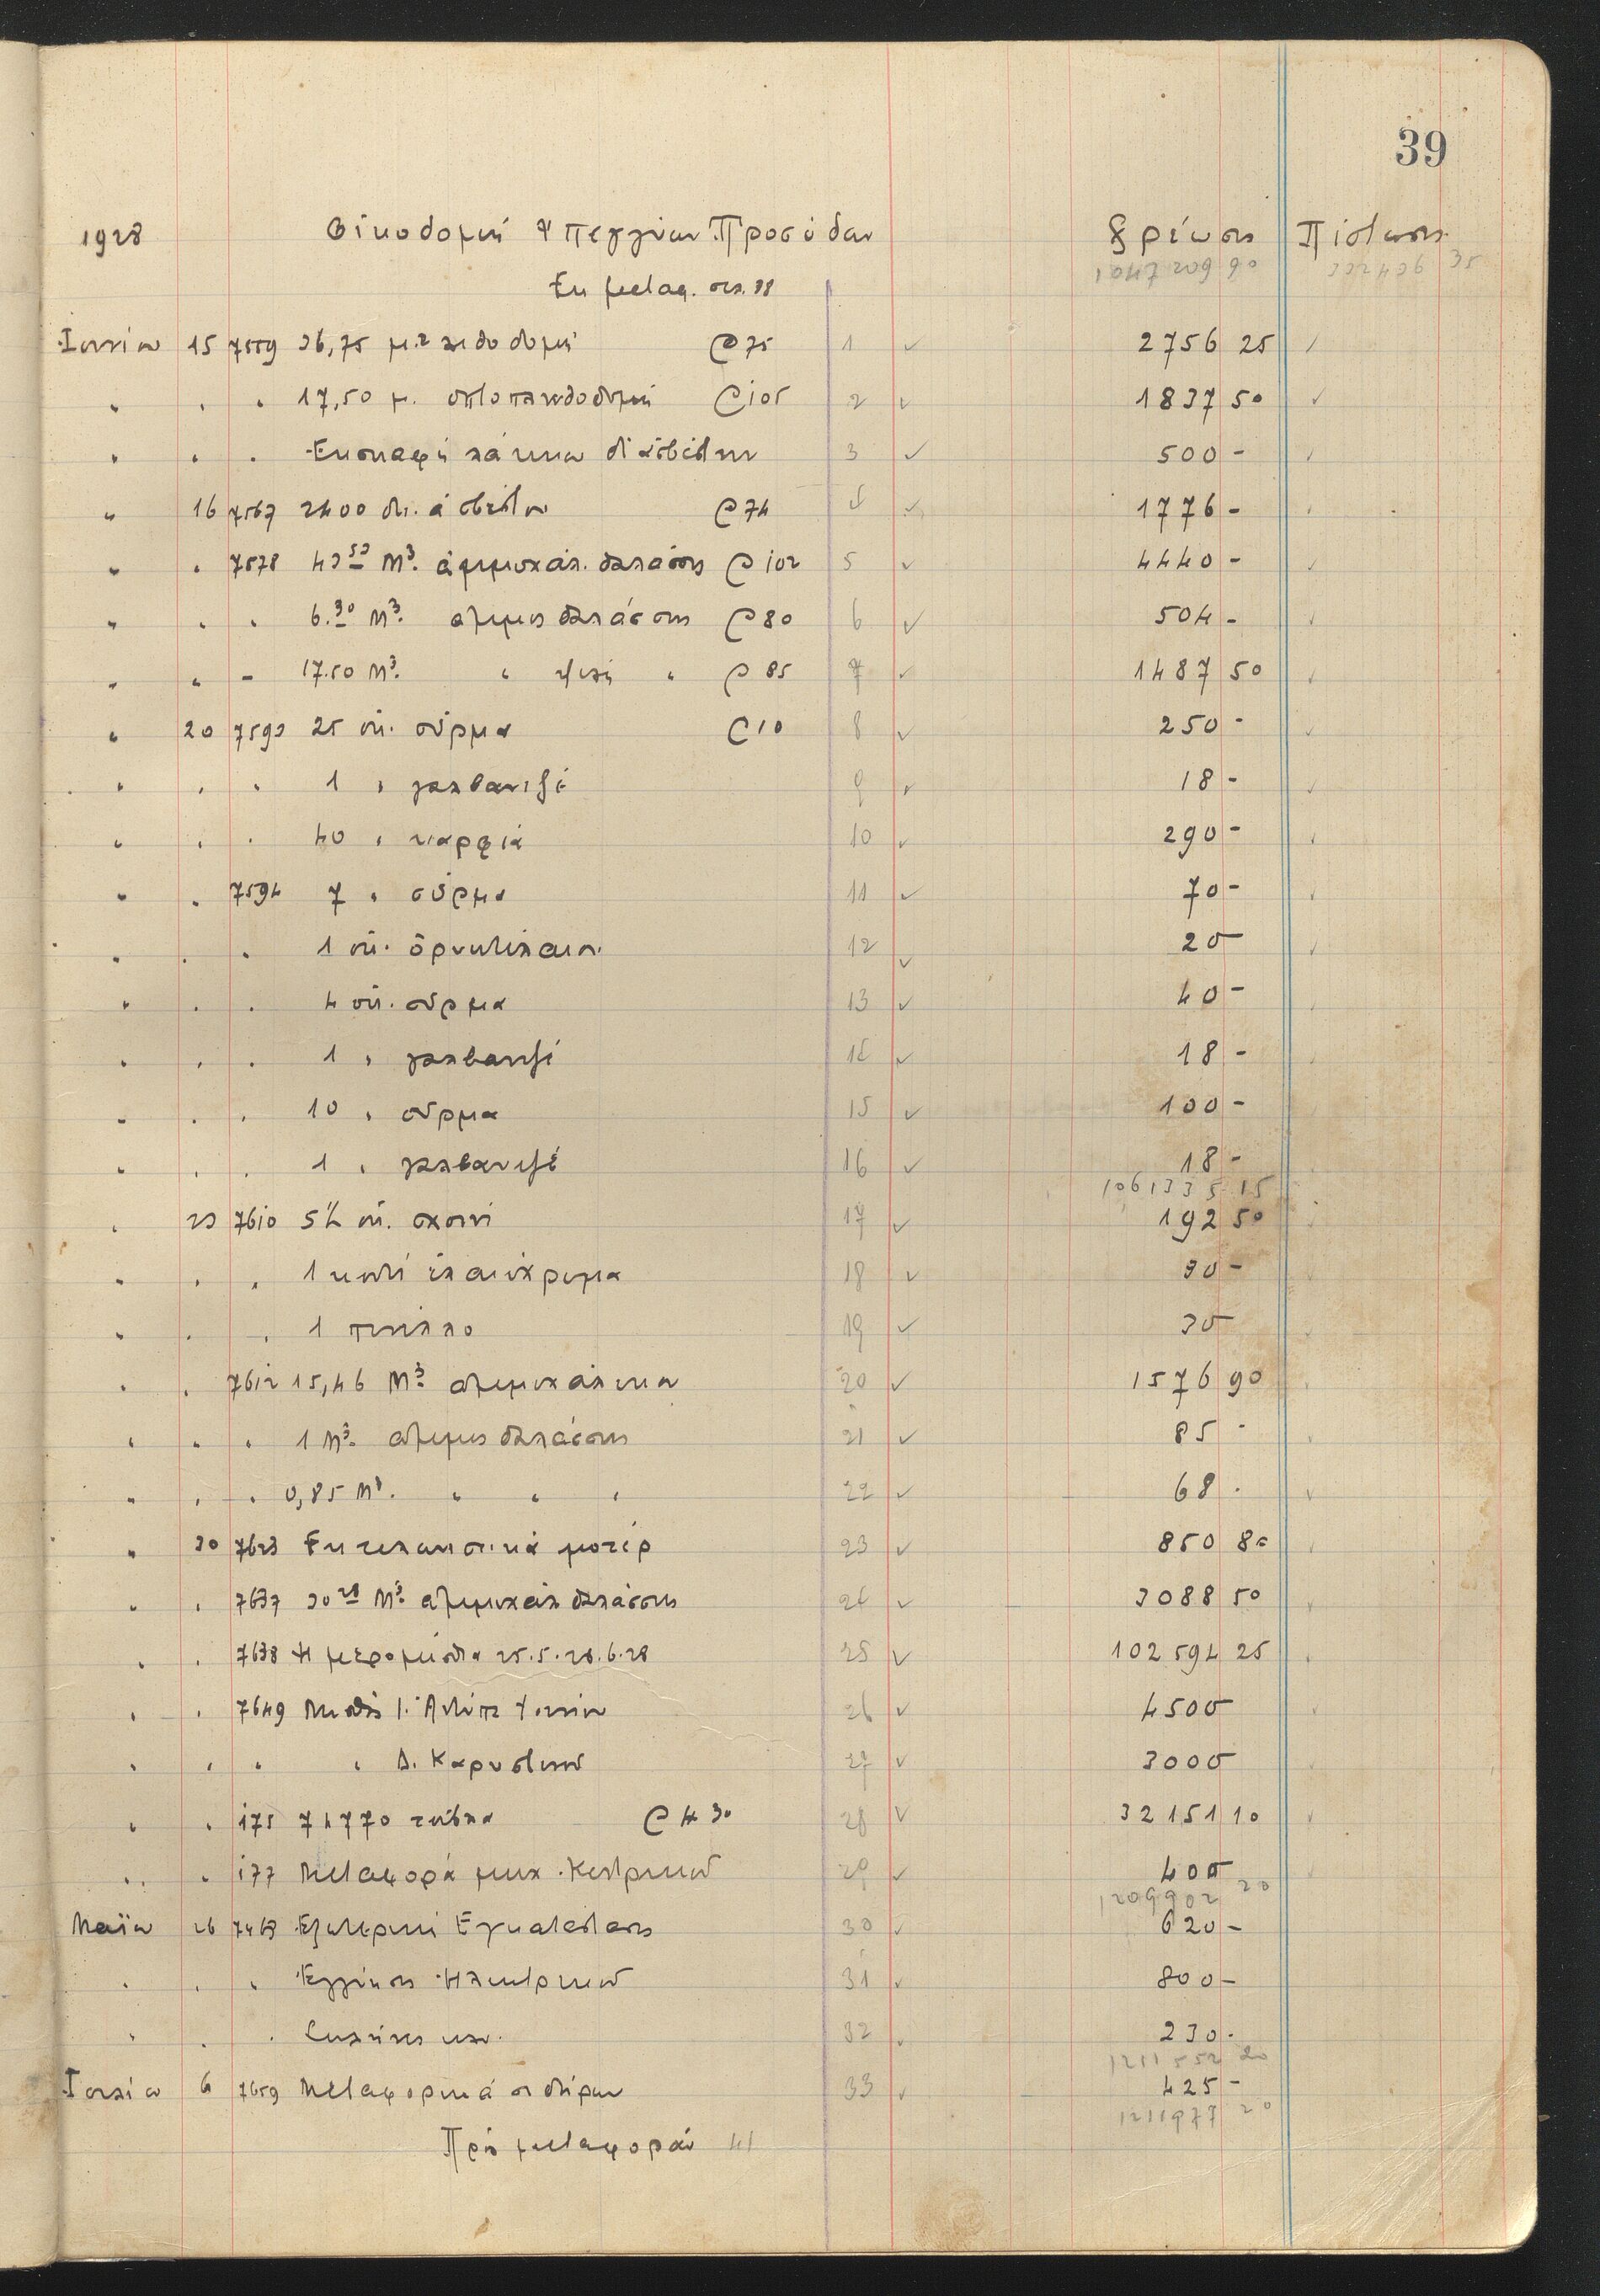 39
1928 Οικοδομή Υπεγγύων Προσόδων Χρέωσις Πίστωσις
Εκ μεταφ. σελ. 38 1047209 90 332436 35
Ιουνίου 15 7559 36,75 μ.2 λιθοδομή @ 75 1 ✓ 2756 25
" " " 17,50 μ. οπτοπλινθοδομή @ 105 2 ✓ 1837 50
" " " Εκσκαφή λάκκου δι' ασβέστην 3 ✓ 500 -
" 16 7567 2400 οκ. ασβέστου @ 74 4 ✓ 1776 -
" " 7578 43 53 Μ3. αμμοχάλ. θαλάσσης @ 102 5 ✓ 4440 -
" " " 6.30 Μ3. άμμος θαλάσσης @ 80 6 ✓ 504 -
" " - 17.50 Μ3. " ψιλή " @ 85 7 ✓ 1487 50
" 20 7593 25 οκ. σύρμα @ 10 8 ✓ 250 -
" " " 1 " γαλβανιζέ 9 ✓ 18 -
" " " 40 " καρφιά 10 ✓ 290 -
" " 7594 7 " σύρμα 11 ✓ 70 -
" " " 1 οκ. ορυκτέλαιον 12 ✓ 20 -
" " " 4 οκ. σύρμα 13 ✓ 40 -
" " " 1 " γαλβανιζέ 14 ✓ 18 -
" " " 10 " σύρμα 15 ✓ 100 -
" " " 1 " γαλβανιζέ 16 ✓ 18 -
1061335 15
" 23 7610 5½ οκ. σχοινί 17 ✓ 192 50
" " " 1 κουτί ελαιόχρωμα 18 ✓ 30 -
" " " 1 πινέλλο 19 ✓ 30 -
" " 7612 15,46 Μ3. αμμοχάλικου 20 ✓ 1576 90
" " " 1 Μ3. άμμος θαλάσσης 21 ✓ 85 -
" " " 0,85 Μ3. " " " 22 ✓ 68 -
" 30 7623 Εκτελωνιστικά μοτέρ 23 ✓ 850 80
" " 7637 30 28 Μ3. αμμοχάλ. θαλάσσης 24 ✓ 3088 50
" " 7638 Ημερομίσθια 25.5-28.6.28 25 ✓ 102594 25
" " 7649 Μισθός Ι. Αντύπ Ιουνίου 26 ✓ 4500 -
" " " " Δ. Καρυστινού 27 ✓ 3000 -
" " 175 74770 τούβλα @ 4 30 28 ✓ 32151 10
" " 177 Μεταφορά μηχ. Κεντρικού 29 ✓ 400 -
1209902 20
Μαΐου 26 7463 Εξωτερική Εγκατάστασις 30 ✓ 620 -
" " " Έγγισις Ηλεκτρικού 31 ✓ 800 -
" " " Σωλήνες 32 ✓ 230 -
1211552 20
Ιουλίου 6 7659 Μεταφορικά σιδήρων 33 ✓ 425 -
1211977 20
Προς μεταφοράν 41